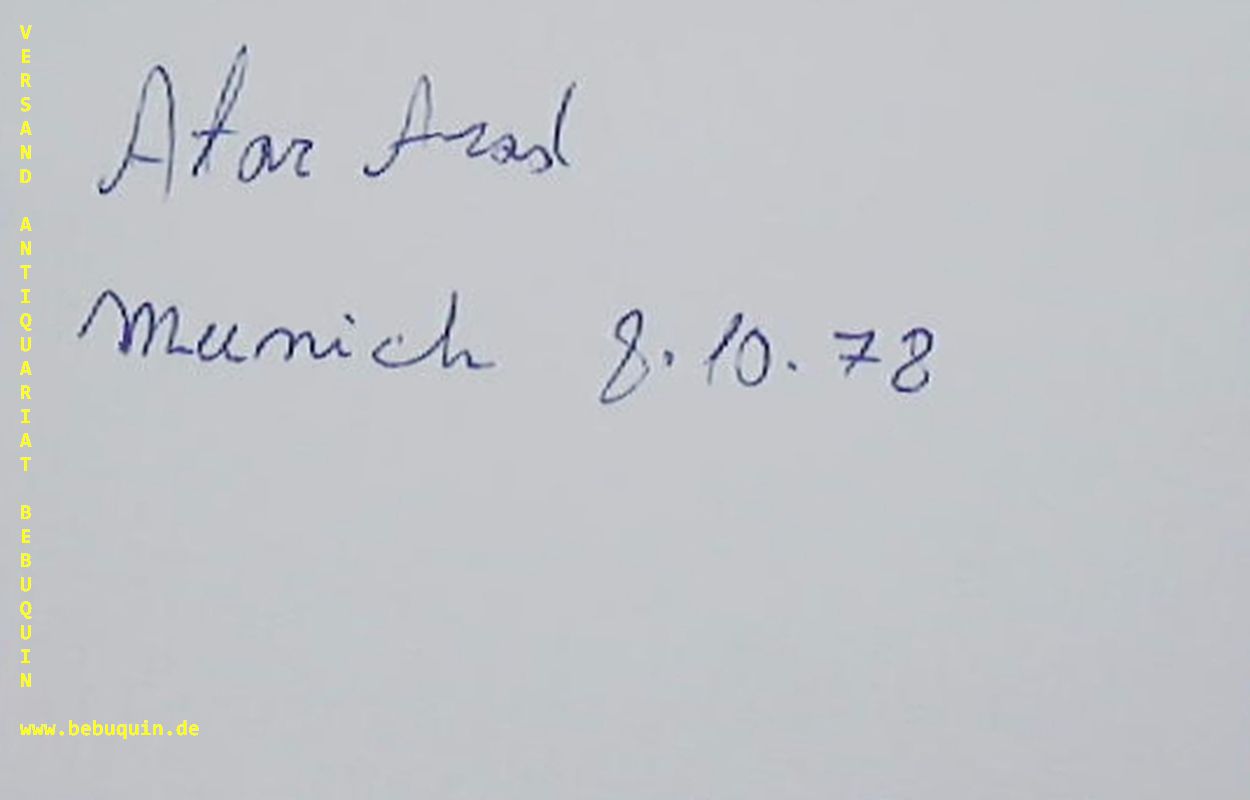 Atar Arad
Munich 8.10.78
VERSAND ANTIQUARIAT BEBUQUIN
www.bebuquin.de